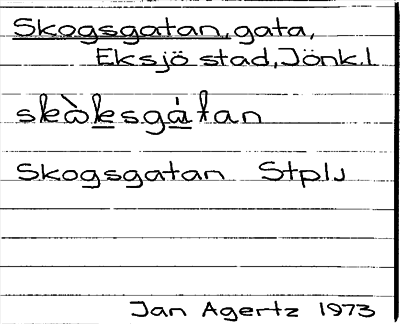 Skogsgatan, gata,
Eksjö stad, Jönk.l
skòksgátan
Skogsgatan Stplu
Jan Agertz 1973